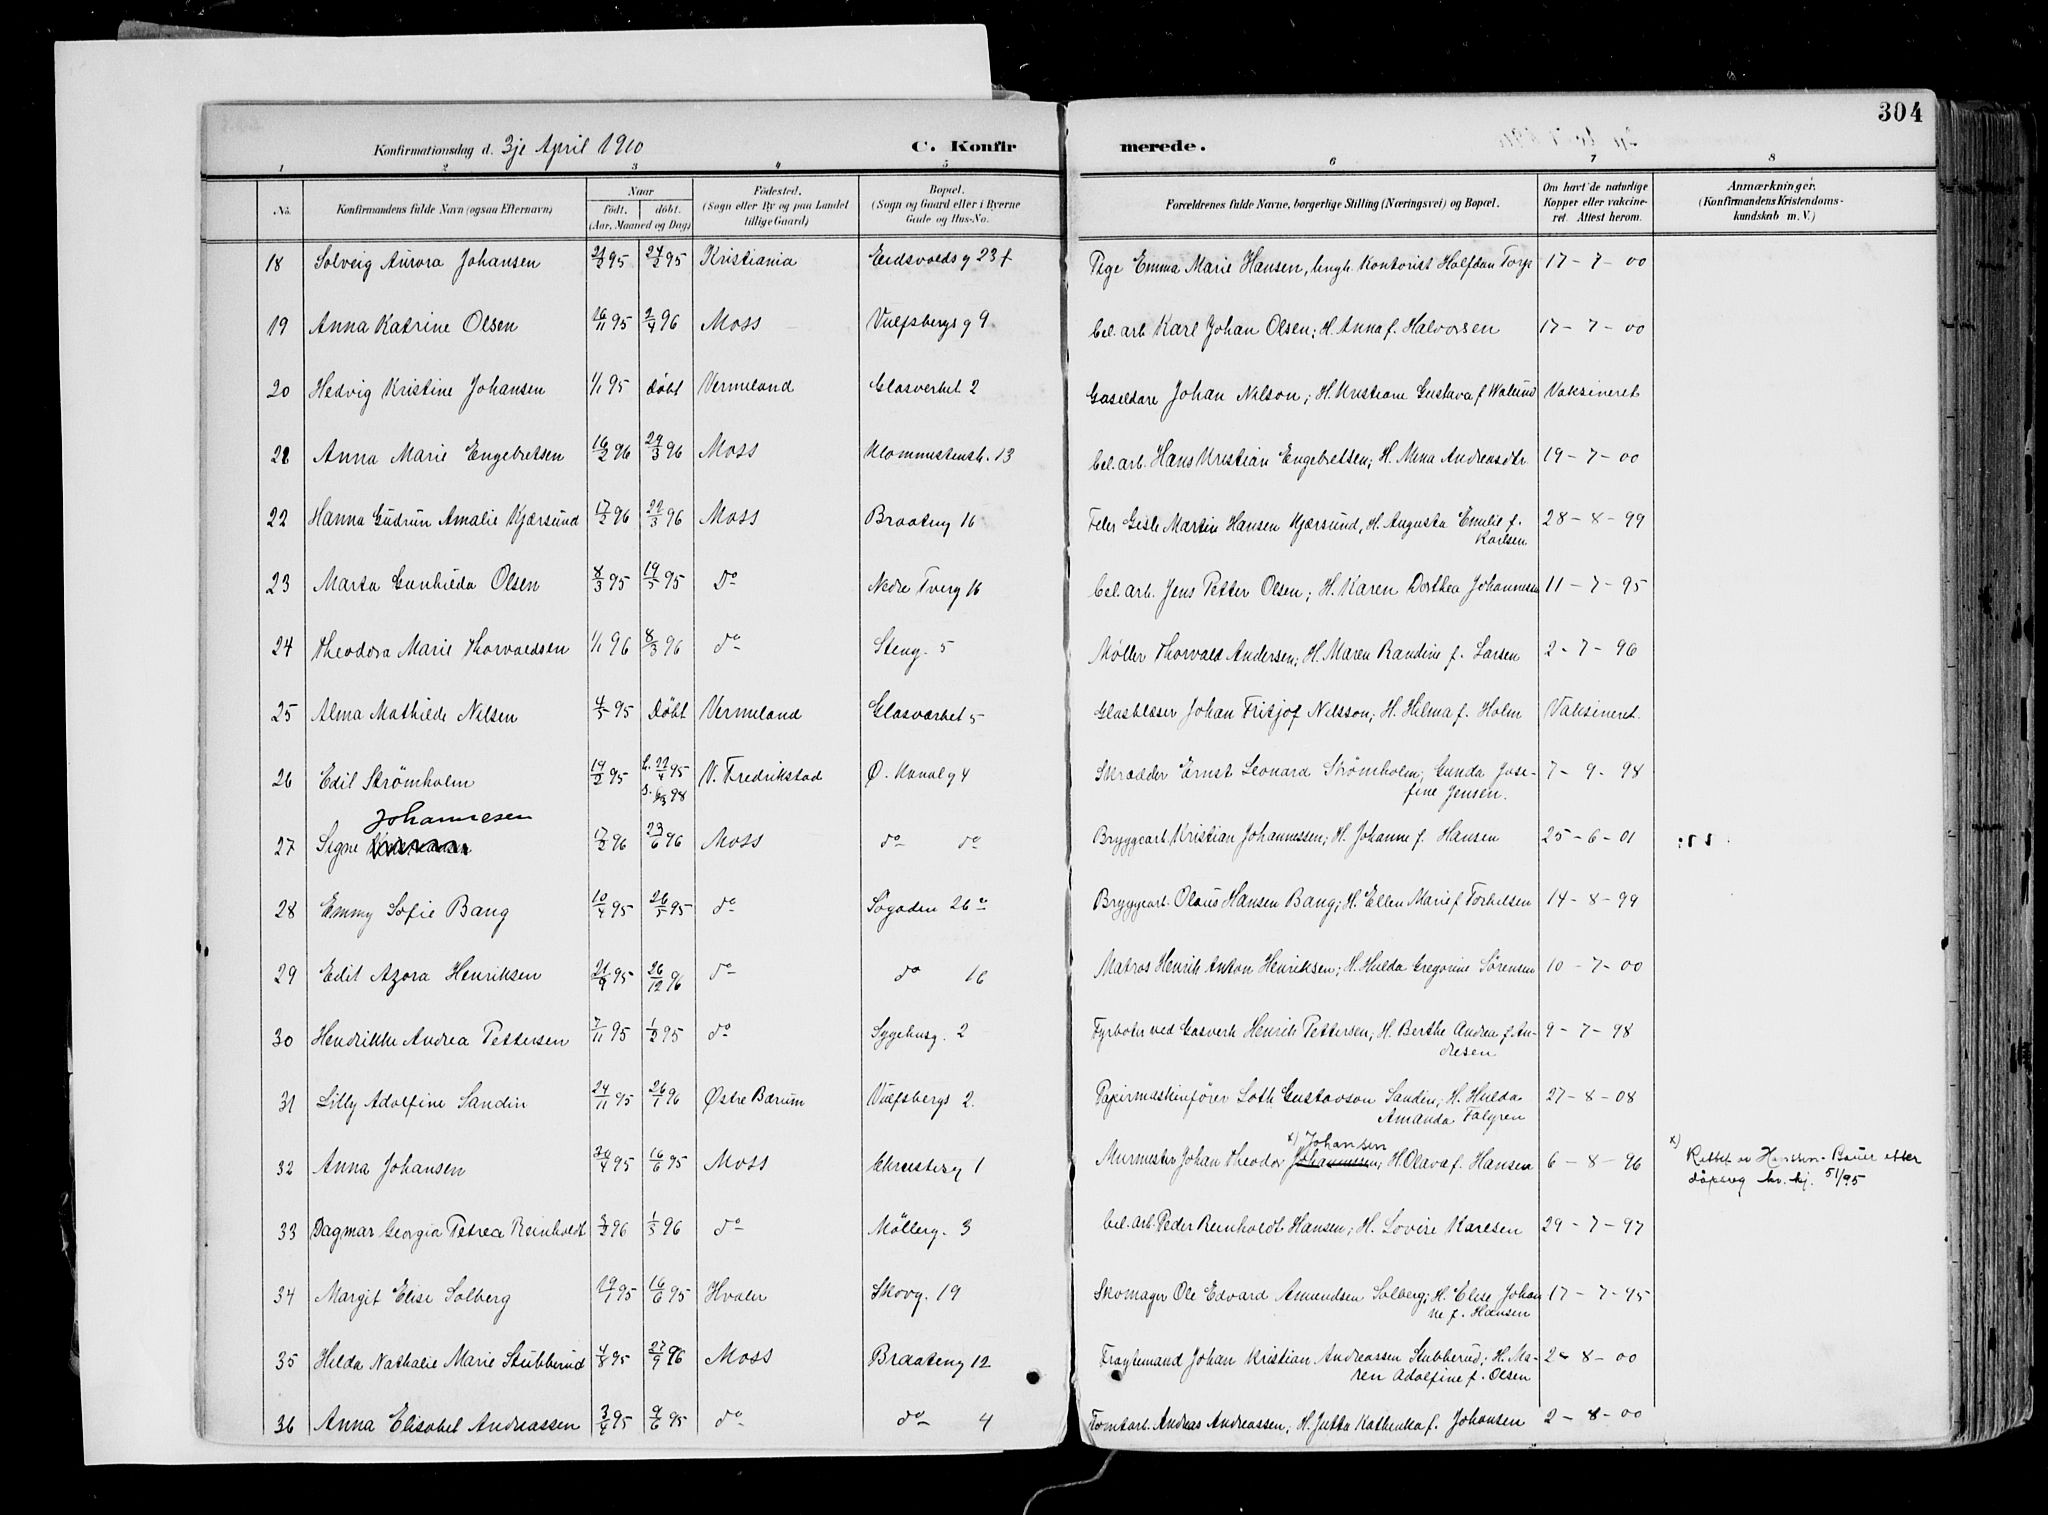 304
Konfirmationsdag d. 3je April 1910 C. Konfirmerede.
1 2 3 4 5 6 7 8
No. Konfirmandens fulde Navn (ogsaa Efternavn) Naar født. døbt. (Aar, Maaned og Dag) Fødested. (Sogn eller By og paa Landet tillige Gaard) Bopæl. (Sogn og Gaard eller i Byerne Gade og Hus-No. Forældrenes fulde Navne, borgerlige Stilling (Næringsvei) og Bopæl. Om havt de naturlige Kopper eller vakcineret. Attest herom. Anmærkninger. (Konfirmandens Kristendomskundskab m. V.)
18 Solveig Aurora Johansen 95 95 Kristiania Eidsvolds g 23 Pige Emma Marie Hansen, Ungk. Kontorist Halfdan Torp 17 - 7 - 00
19 Anna Katrine Olsen 16/11 95 2/4 96 Moss Vulfsbergs g 9 Cel. arb Karl Johan Olsen; H. Anna f. Halvorsen 17 - 7 - 00
20 Hedvig Kristine Johansen 1/1 95 Døbt Vermeland Glasverket 2 Johan Nilson; H. Kristiane Gustava f Walund Vaksineret
21 Anna Marie Engebretsen 16/2 96 29/3 96 Moss 13 Cel. arb. Hans Kristian Engebretsen; H. Mina Andreasdtr. 19 - 7 - 00
22 Hanna Gudrun Amalie Kjærsund 17/2 96 22/3 96 Moss Braateng 16 Feier Gisle Martin Hansen Kjærsund, H. Augusta Emilie f. 28 - 8 - 99
Karlsen
23 Marta Gunhilda Olsen 8/3 95 19/5 95 Do Nedre Tverg 16 Cel. arb. Jens Petter Olsen; H. Karen Dorthea Johannesen 11 - 7 - 95
24 Theodora Marie Thorvaldsen 1/1 96 8/3 96 do Steng. 5 Møller Thorvald Andersen; H. Maren Randine f. Larsen 2 - 7 - 96
25 Alma Mathilde Nilsen 4/5 95 Døbt Vermeland Glasværket 5 Glasblæser Johan Fritjof Nilsson, H. Hilma f. Holm Vaksineret.
26 Edil Strømholm 19/2 95 22/4 95 V. Fredrikstad Ø. Kanalg 4 Skrædder Ernst Leonard Strømholm; Gunda Jose- 7 - 9 - 98
98 fine Jensen.
Johannesen
27 Signe 17/2 96 23/6 96 Moss do do Bryggearb Kristian Johannessen; H. Johanne f. Hansen 25 - 6 - 01
28 Emmy Sofie Bang 10/4 95 26/5 95 do Søgaden 26 Bryggearb. Olaus Hansen Bang; H. Ellen Marie f Torkelsen 14 - 8 - 99
29 Edit Azora Henriksen 21/9 95 26/12 96 do do 16 Matros Henrik Anton Henriksen; H. Hulda Gregorine Sørensen 10 - 7 - 00
30 Hendrikke Andrea Pettersen 7/11 95 1/2 95 do Sygehusg. 2 Fyrbøter ved Gasverk Henrik Pettersen; H. Berthe Andrea f. An- 9 - 7 - 98
dresen
31 Lilly Adolfine Sandin 24/11 95 26/1 96 Østre Bærum Vulfsbergs 2. Papirmaskinfører Loth Gustavson Sandin, H. Hulda 27 - 8 - 08
Amanda Falgren
x) Johansen
32 Anna Johansen 30/4 95 16/6 95 Moss 1 Murmester Johan Theodor Johannessen; H. Olava f. Hansen 6 - 8 - 96 x) Rettet av Hansten-Bauer etter
døpereg kv. kj. 51/95
33 Dagmar Georgia Petrea Reinholdt 3/2 96 1/3 96 do Møllerg. 3 Cel. arb. Peder Reinholdt Hansen; H. Lovise Karlsen 29 - 7 - 97
34 Margit Elise Solberg 19/1 95 16/6 95 Hvaler Skovg. 19 Skomager Ole Edvard Amundsen Solberg; H. Elise Johan 17 - 7 - 95
ne f. Hansen
35 Hilda Nathalie Marie Stubberud 4/8 95 27/9 96 Moss Braateng 12 Fragtemand Johan Kristian Andreassen Stubberud; H. Ma- 2 - 8 - 00
ren Adolfine f. Olsen
36 Anna Elisabet Andreassen 95 9/6 95 do do 4 Tomtarb. Andreas Andreassen; H. Jutta Kathinka f. Johansen 2 - 8 - 00